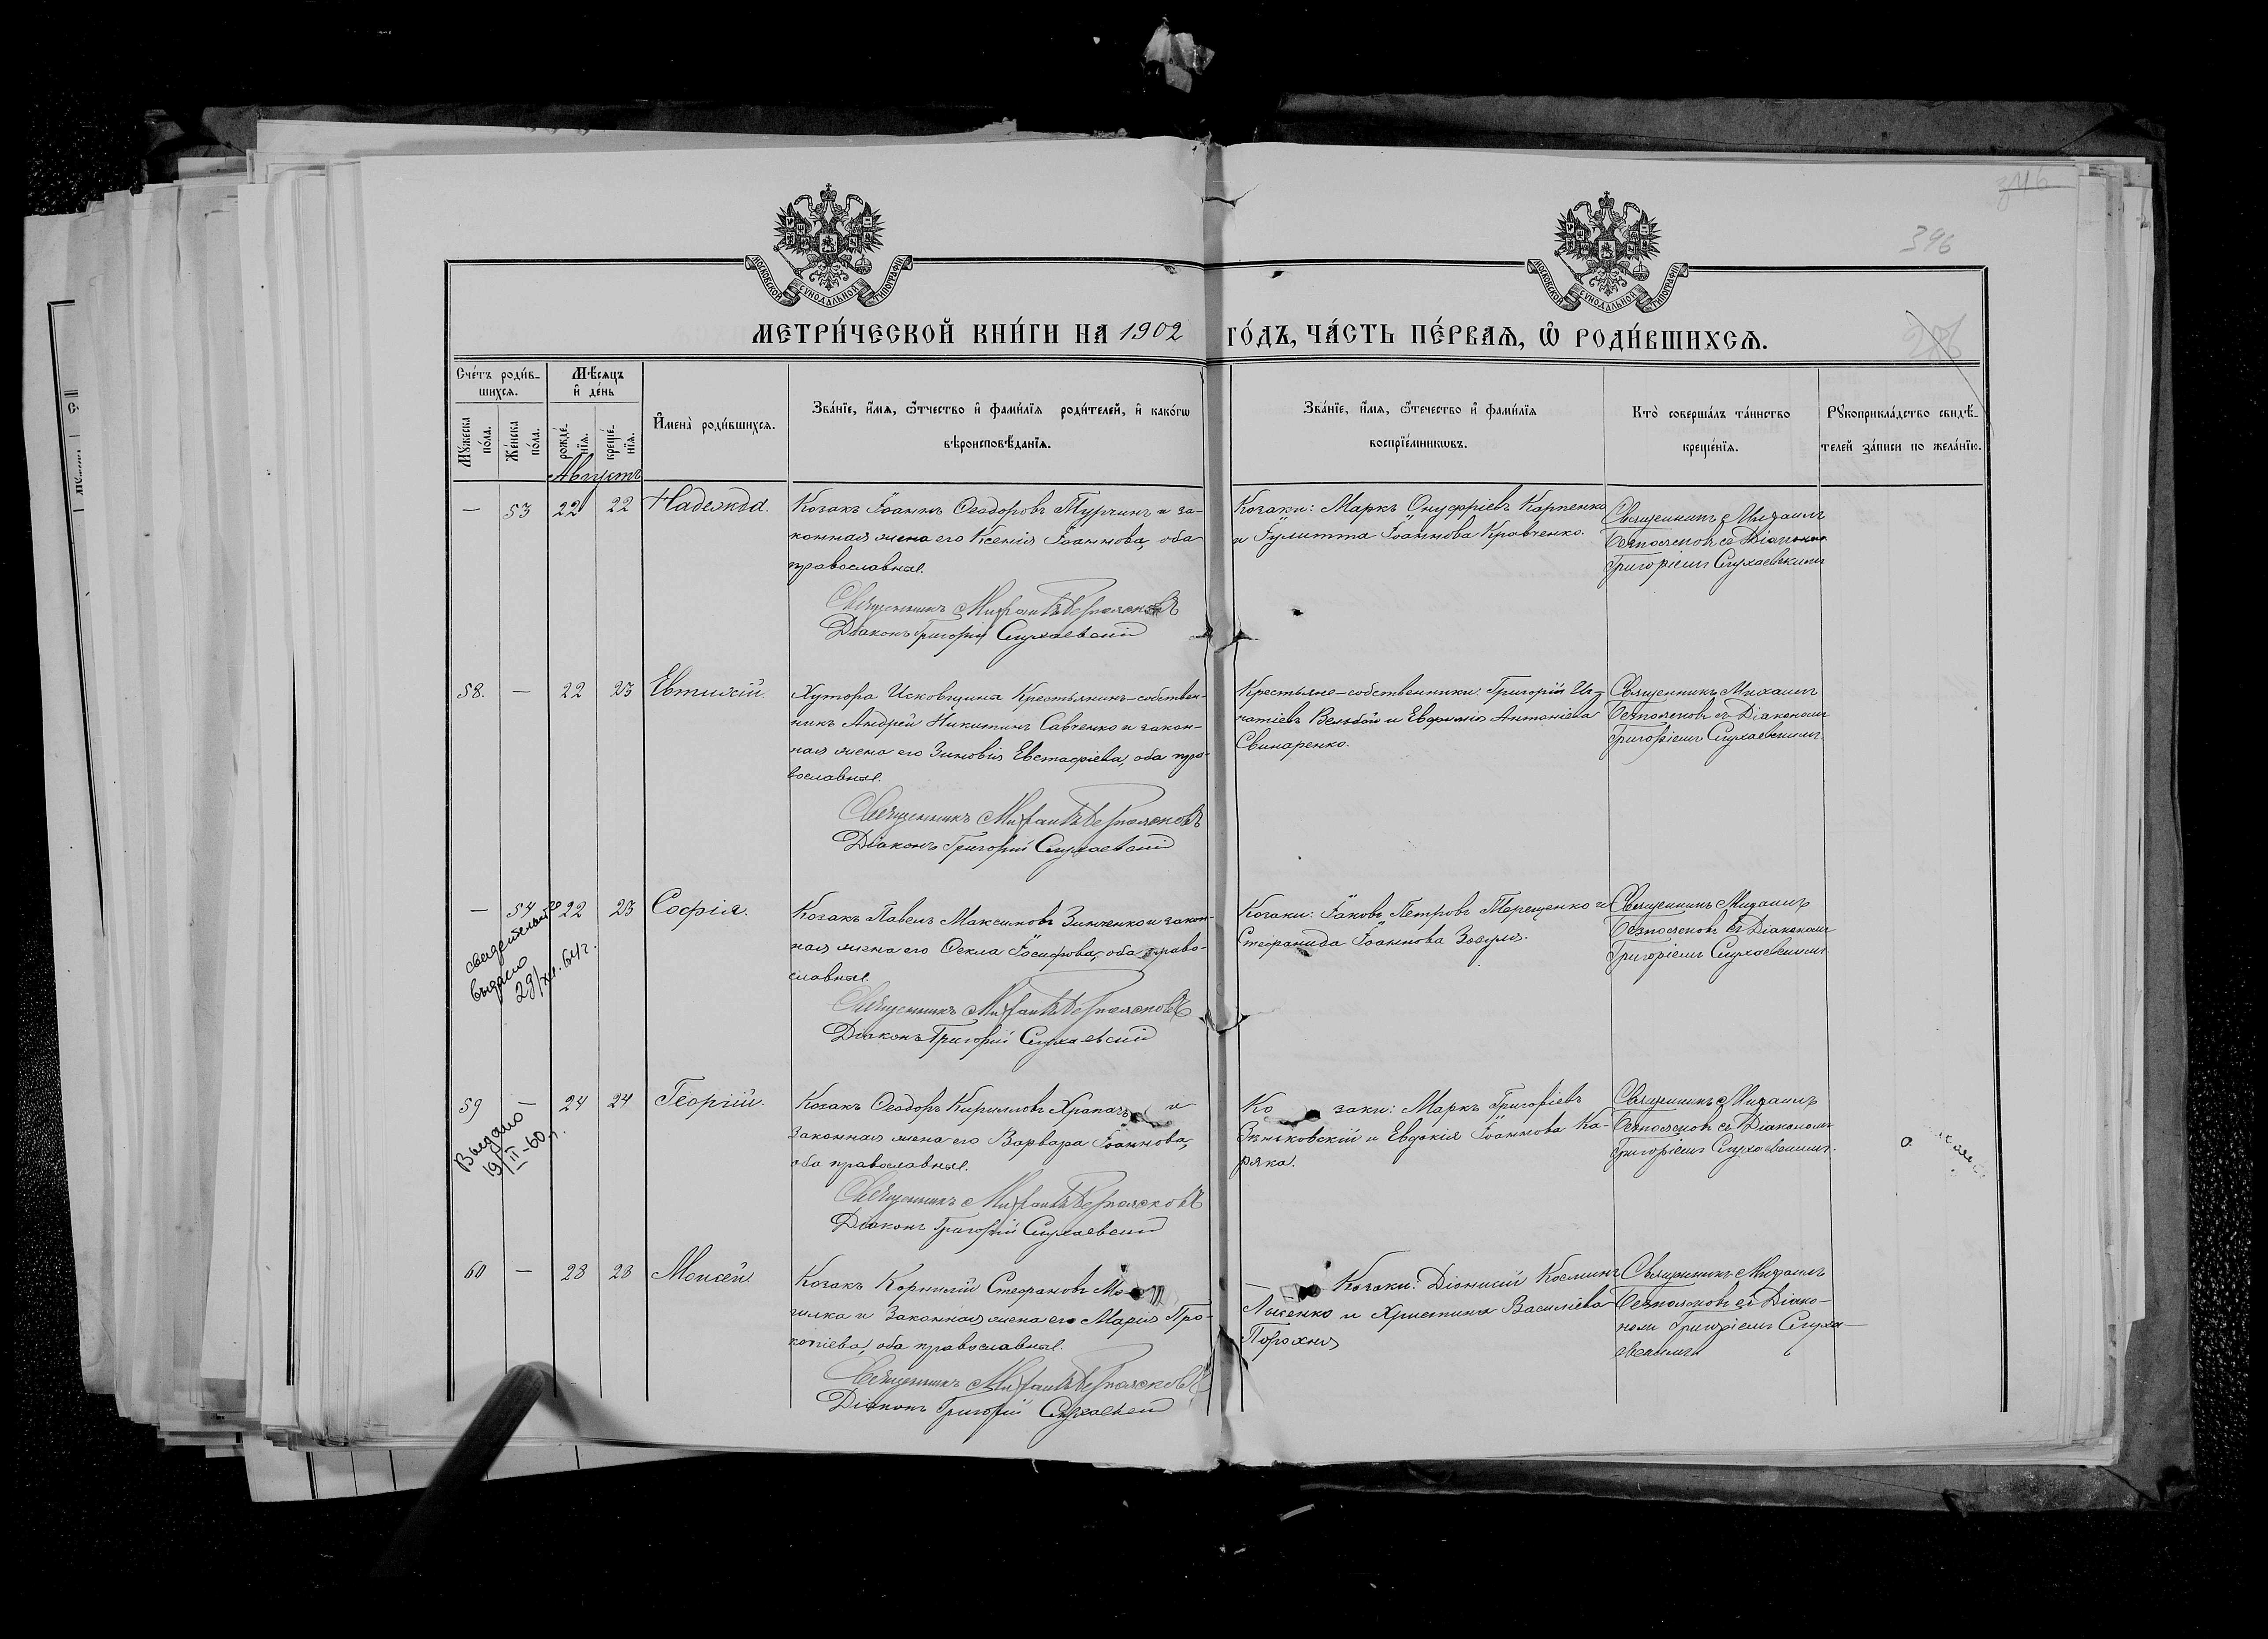 346
396
286
МОСКОВСКОЙ СѴНОДАЛЬНОЙ ТИПОГРАФІИ
МОСКОВСКОЙ СѴНОДАЛЬНОЙ ТИПОГРАФІИ
МЕТРИ́ЧЕСКОЙ КНИ́ГИ НА 1902 ГО́ДЪ, ЧА́СТЬ ПЕ́РВАЯ, Ѡ҆ РОДИ́ВШИХСЯ.
Сче́тъ роди́в-
шихся.
Мѣ́сяцъ
и҆ де́нь
Му́жеска
по́ла.
Же́нска
по́ла.
рожде́-
нїя.
креще́-
нїя.
И҆мена̀ роди́вшихся.
Зва́нїе, и҆́мя, ѻ҆́тчество и҆ фами́лїя роди́телей, и҆ како́гѡ
вѣроисповѣ́данїя.
Зва́нїе, и҆́мя, ѻ҆́течество и҆ фами́лїя
воспрїе́мникѡвъ.
Кто̀ соверша́лъ та́инство
креще́нїя.
Рукоприкла́дство свидѣ́-
телей за́писи по жела́нїю.
Августъ
— 53 22 22 Надежда.
Козакъ Іоаннъ Ѳеодоровъ Турчинъ и за-
конная жена его Ксенія Іоаннова, оба
православные.
Священникъ Михаилъ Безпояковъ
Діаконъ Григорій Слухаевскій
Козаки: Маркъ Онуфріевъ Карпенко
и Іулитта Іоаннова Кравченко.
Священникъ Михаилъ
Безпояковъ съ Діакономъ
Григоріемъ Слухаевскимъ
58. — 22 23 Евтихій.
Хутора Исковщина Крестьянинъ-собствен-
никъ Андрей Никитинъ Савченко и закон-
ная жена его Зиновія Евстафіева, оба пра-
вославные.
Священникъ Михаилъ Безпояковъ
Діаконъ Григорій Слухаевскій
Крестьяне-собственники: Григорій Иг-
натіевъ Вельбой и Евфимія Антоніева
Свинаренко.
Священникъ Михаилъ
Безпояковъ съ Діакономъ
Григоріемъ Слухаевскимъ.
— 54 22 23 Софія.
свидетельство
выдано
29/XII.64г.
Козакъ Павелъ Максимовъ Зинченко и закон-
ная жена его Ѳекла Іосифова, оба право-
славные.
Священникъ Михаилъ Безпояковъ
Діаконъ Григорій Слухаевскій
Козаки: Іаковъ Петровъ Терещенко и
Стефанида Іоаннова Заяруз.
Священникъ Михаилъ
Безпояковъ съ Діакономъ
Григоріемъ Слухаевскимъ.
59 — 24 24 Георгій.
Выдано
19/II-60 г.
Козакъ Ѳеодоръ Кирилловъ Храпачъ и
законная жена его Варвара Іоаннова,
оба православные.
Священникъ Михаилъ Безпояковъ
Діаконъ Григорій Слухаевскій
Козаки: Маркъ Григоріевъ
Зѣньковскій и Евдокія Іоаннова Ка-
ряка.
Священникъ Михаилъ
Безпояковъ съ Діакономъ
Григоріемъ Слухаевскимъ.
60 — 28 28 Моисей
Козакъ Корнилій Стефановъ Мо-
гилка и законная жена его Марія Про-
копіева, оба православные.
Священникъ Михаилъ Безпояковъ
Діаконъ Григорій Слухаевскій
Козаки: Діонисій Косминъ
Лысенко и Христина Василіева
Порохня
Священникъ Михаилъ
Безпояковъ съ Діако-
номъ Григоріемъ Слуха-
евскимъ